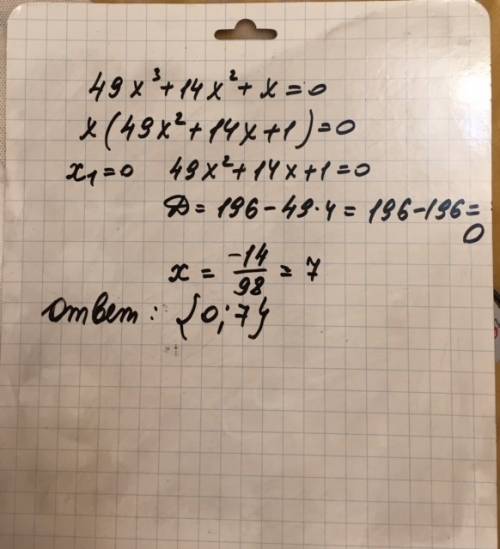 49x³+14x²+x=0
x(49x²+14x+1)=0
x₁=0 49x²+14x+1=0
D=196-49·4=196-196=
0
x=-14/98=7
Ответ: {0;7}